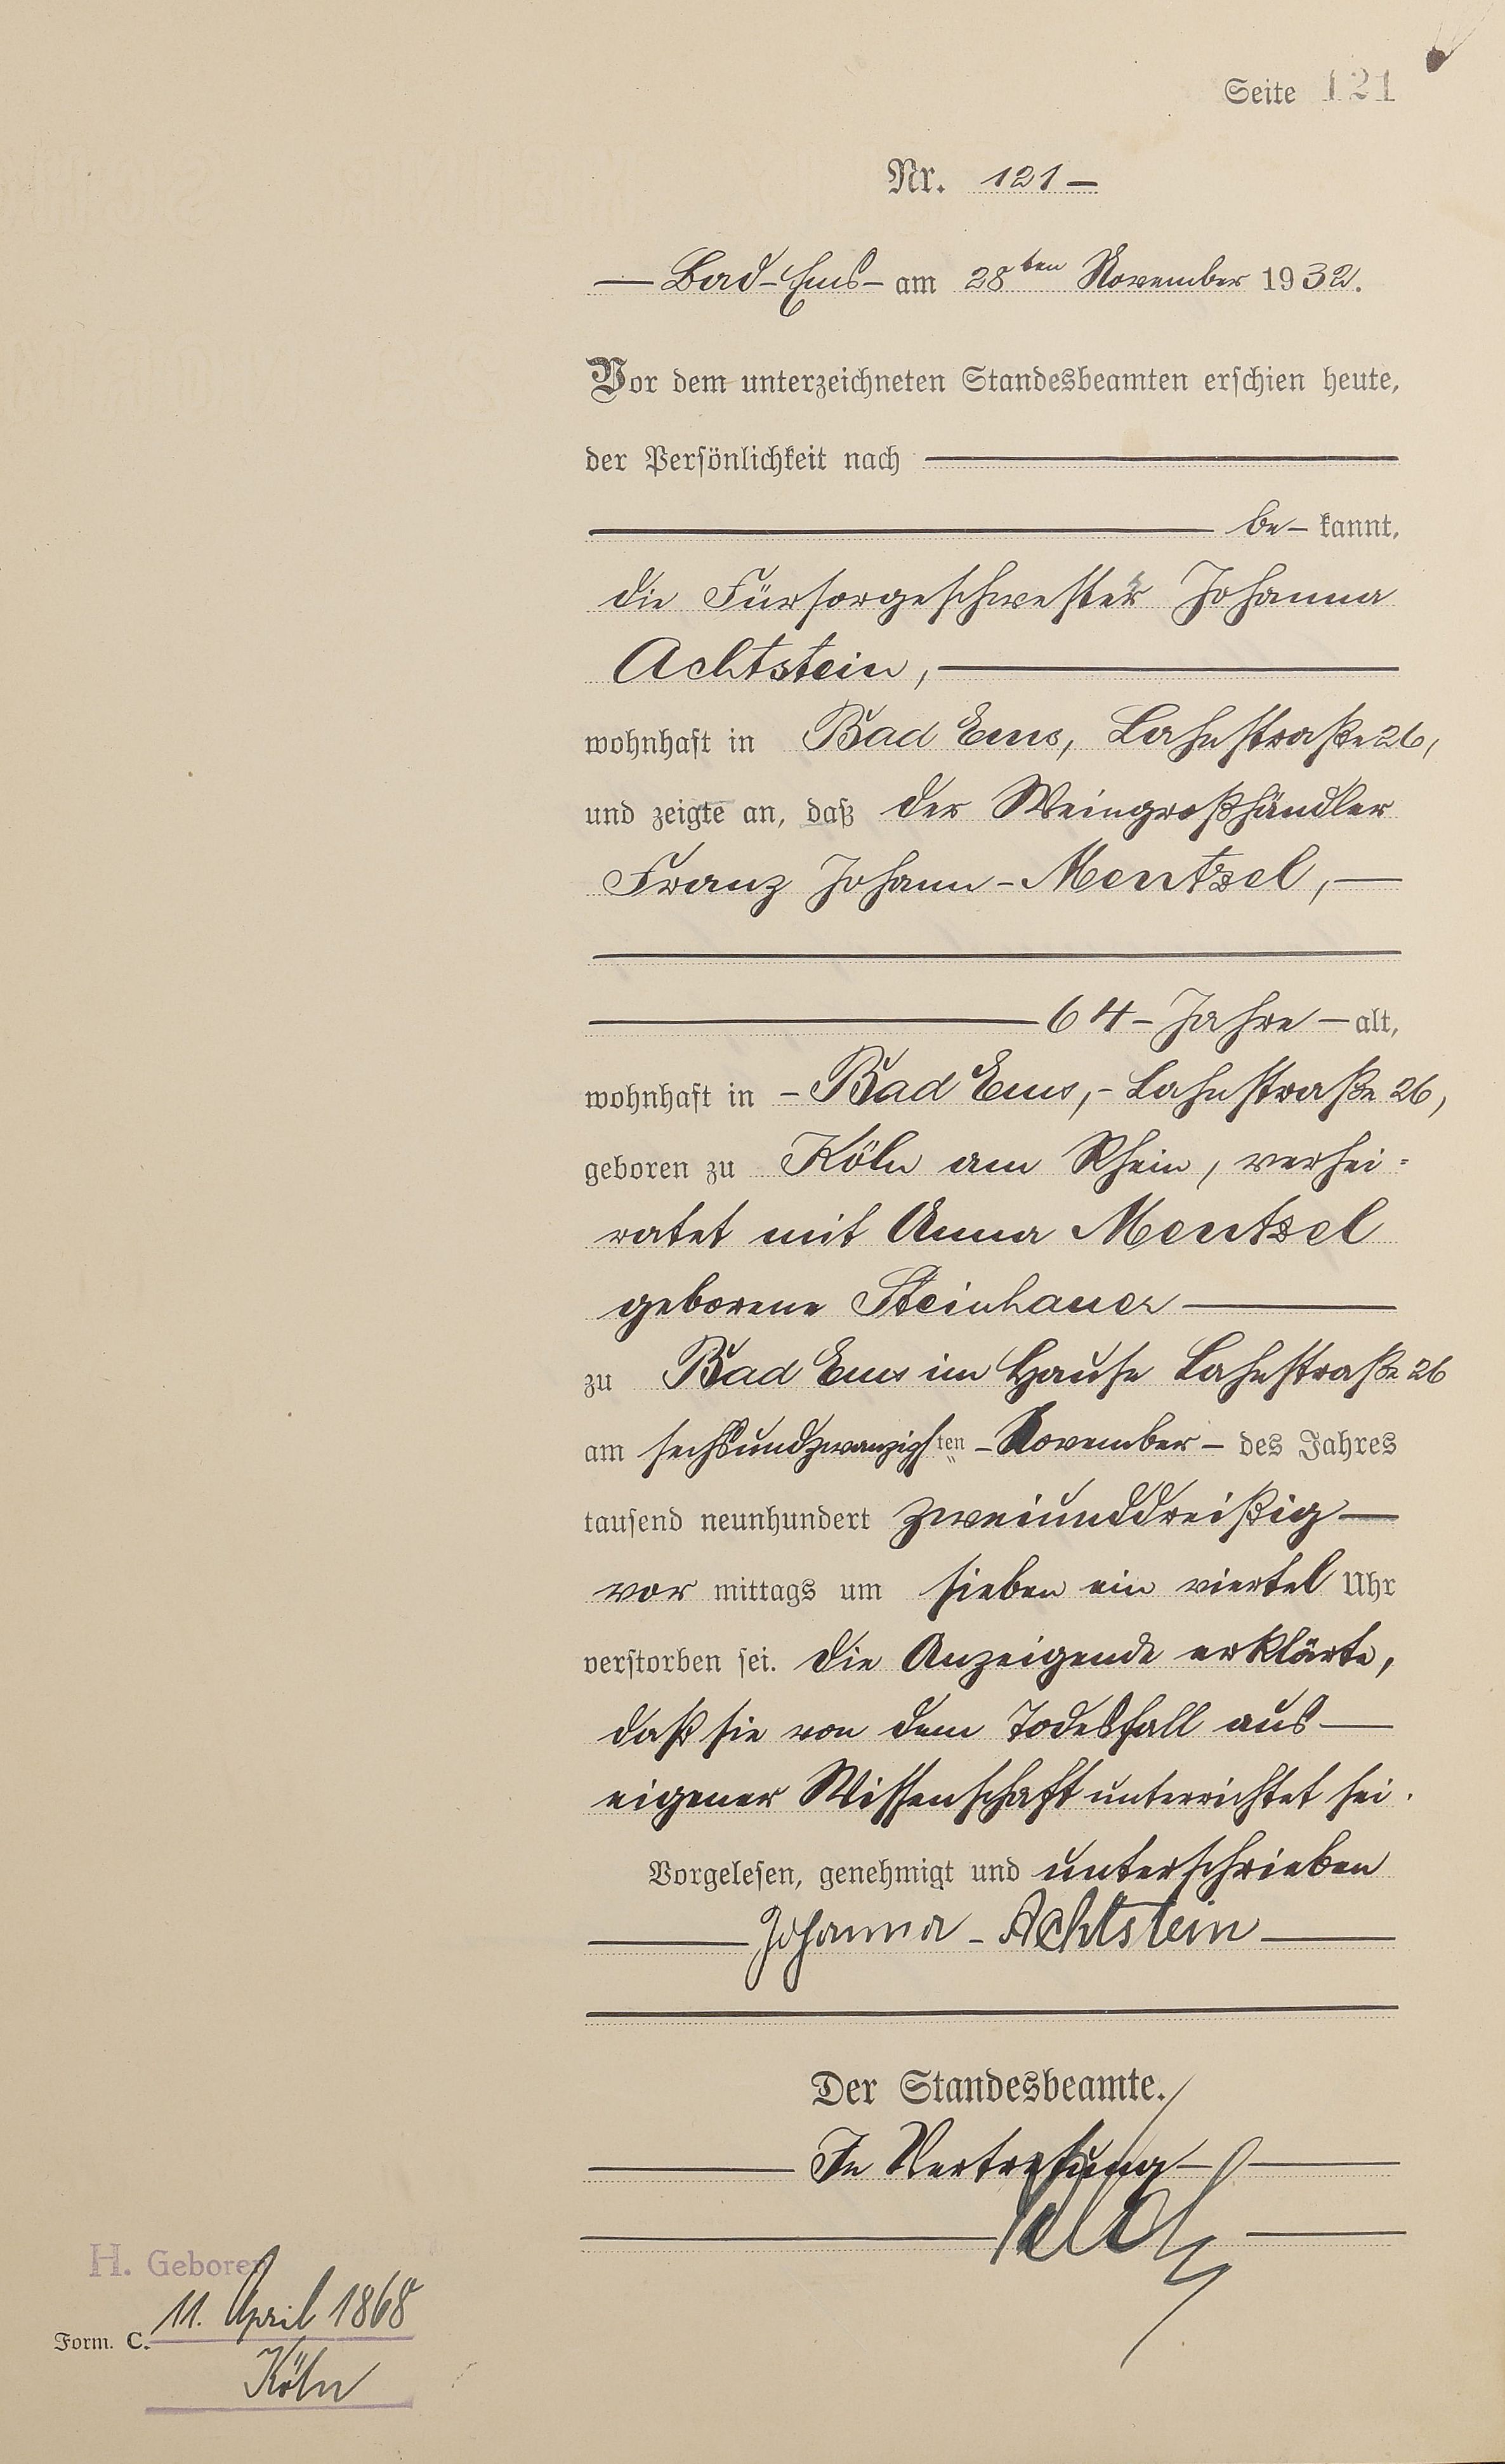 Seite 121
Nr. 121 —
— Bad-Ems — am 28ten November 1932.
Vor dem unterzeichneten Standesbeamten erschien heute,
der Persönlichkeit nach
be- kannt,
die Fürsorgeschwester Johanna
Achtstein,
wohnhaft in Bad Ems, Lahnstraße 26,
und zeigte an, daß der Weingroßhändler
Franz Johann - Mentzel,
64 - Jahre - alt,
wohnhaft in - Bad Ems, - Lahnstraße 26,
geboren zu Köln am Rhein, verhei-
ratet mit Anna Mentzel
geborene Steinhauer
zu Bad Ems im Hause Lahnstraße 26
am sechsundzwanzigsten - November - des Jahres
tausend neunhundert zweiunddreißig
vor mittags um sieben ein viertel Uhr
verstorben sei. Die Anzeigende erklärte,
daß sie von dem Todesfall aus
eigener Wissenschaft unterrichtet sei.
Vorgelesen, genehmigt und unterschrieben
Johanna - Achtstein
Der Standesbeamte.
In Vertretung
H. Geboren
11. April 1868
Form. C.
Köln